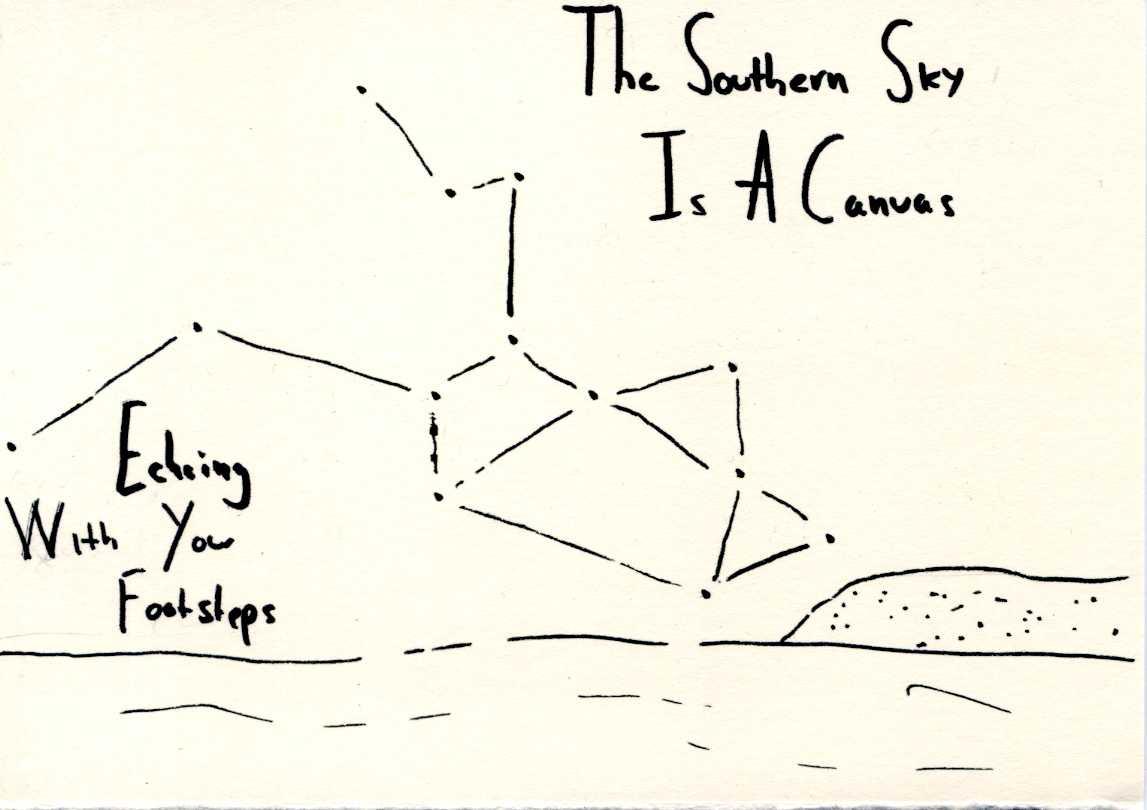 The Southern Sky
Is A Canvas
Echoing
With Your
Footsteps